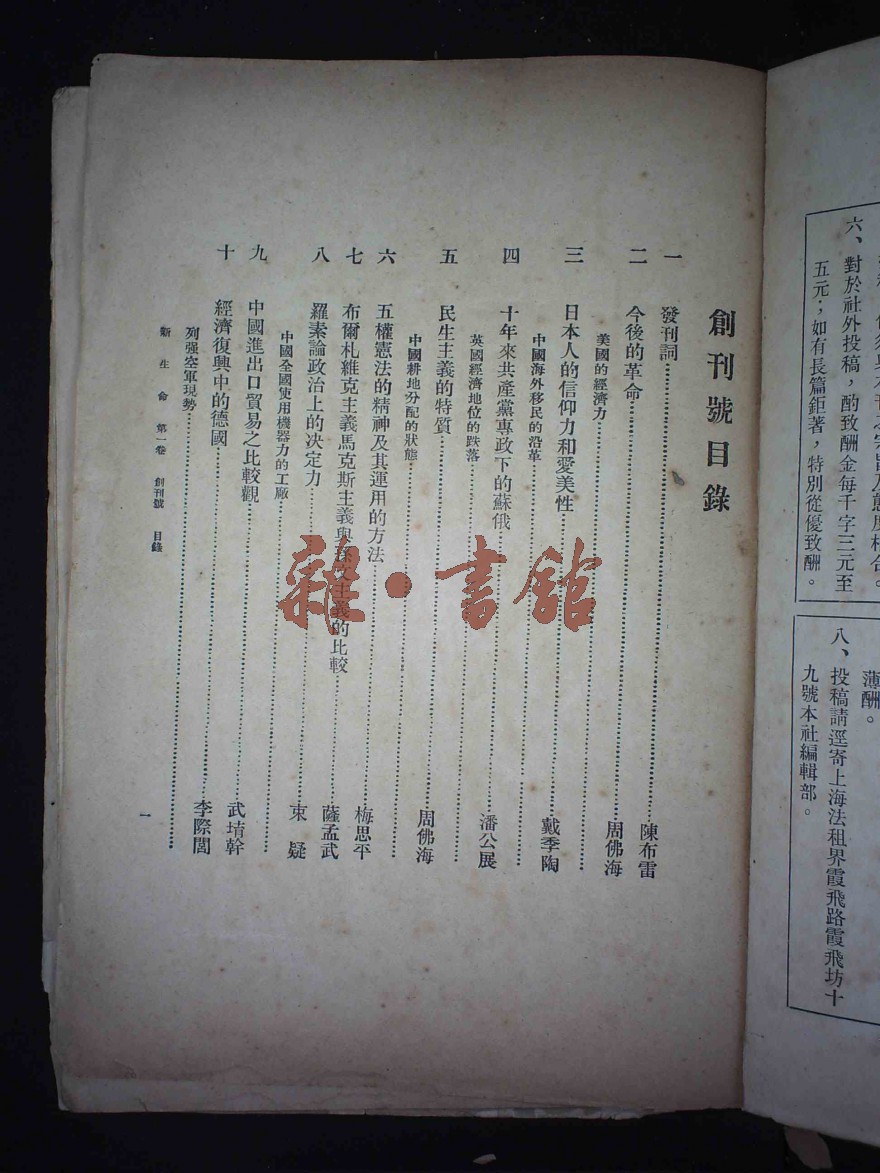 六、對於社外投稿，酌致酬金每千字三元至
五元；如有長篇鉅著，特別從優致酬。
薄酬。
八、投稿請逕寄上海法租界霞飛路霞飛坊十
九號本社編輯部。
創刊號目錄
一 發刊詞 陳布雷
二 今後的革命 周佛海
美國的經濟力
三 日本人的信仰力和愛美性 戴季陶
中國海外移民的沿革
四 十年來共產黨專政下的蘇俄 潘公展
英國經濟地位的跌落
五 民生主義的特質 周佛海
中國耕地分配的狀態
六 五權憲法的精神及其運用的方法 梅思平
七 布爾札維克主義馬克斯主義與孫文主義的比較 薩孟武
八 羅素論政治上的决定力 束疑
中國全國使用機器力的工廠
九 中國進出口貿易之比較觀 武堉幹
十 經濟復興中的德國 李際閶
列强空軍現勢
新生命 第一卷 創刊號 目錄
一
雜·書館